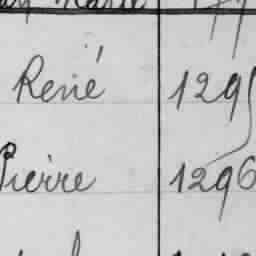 René 1295
Pierre 1296